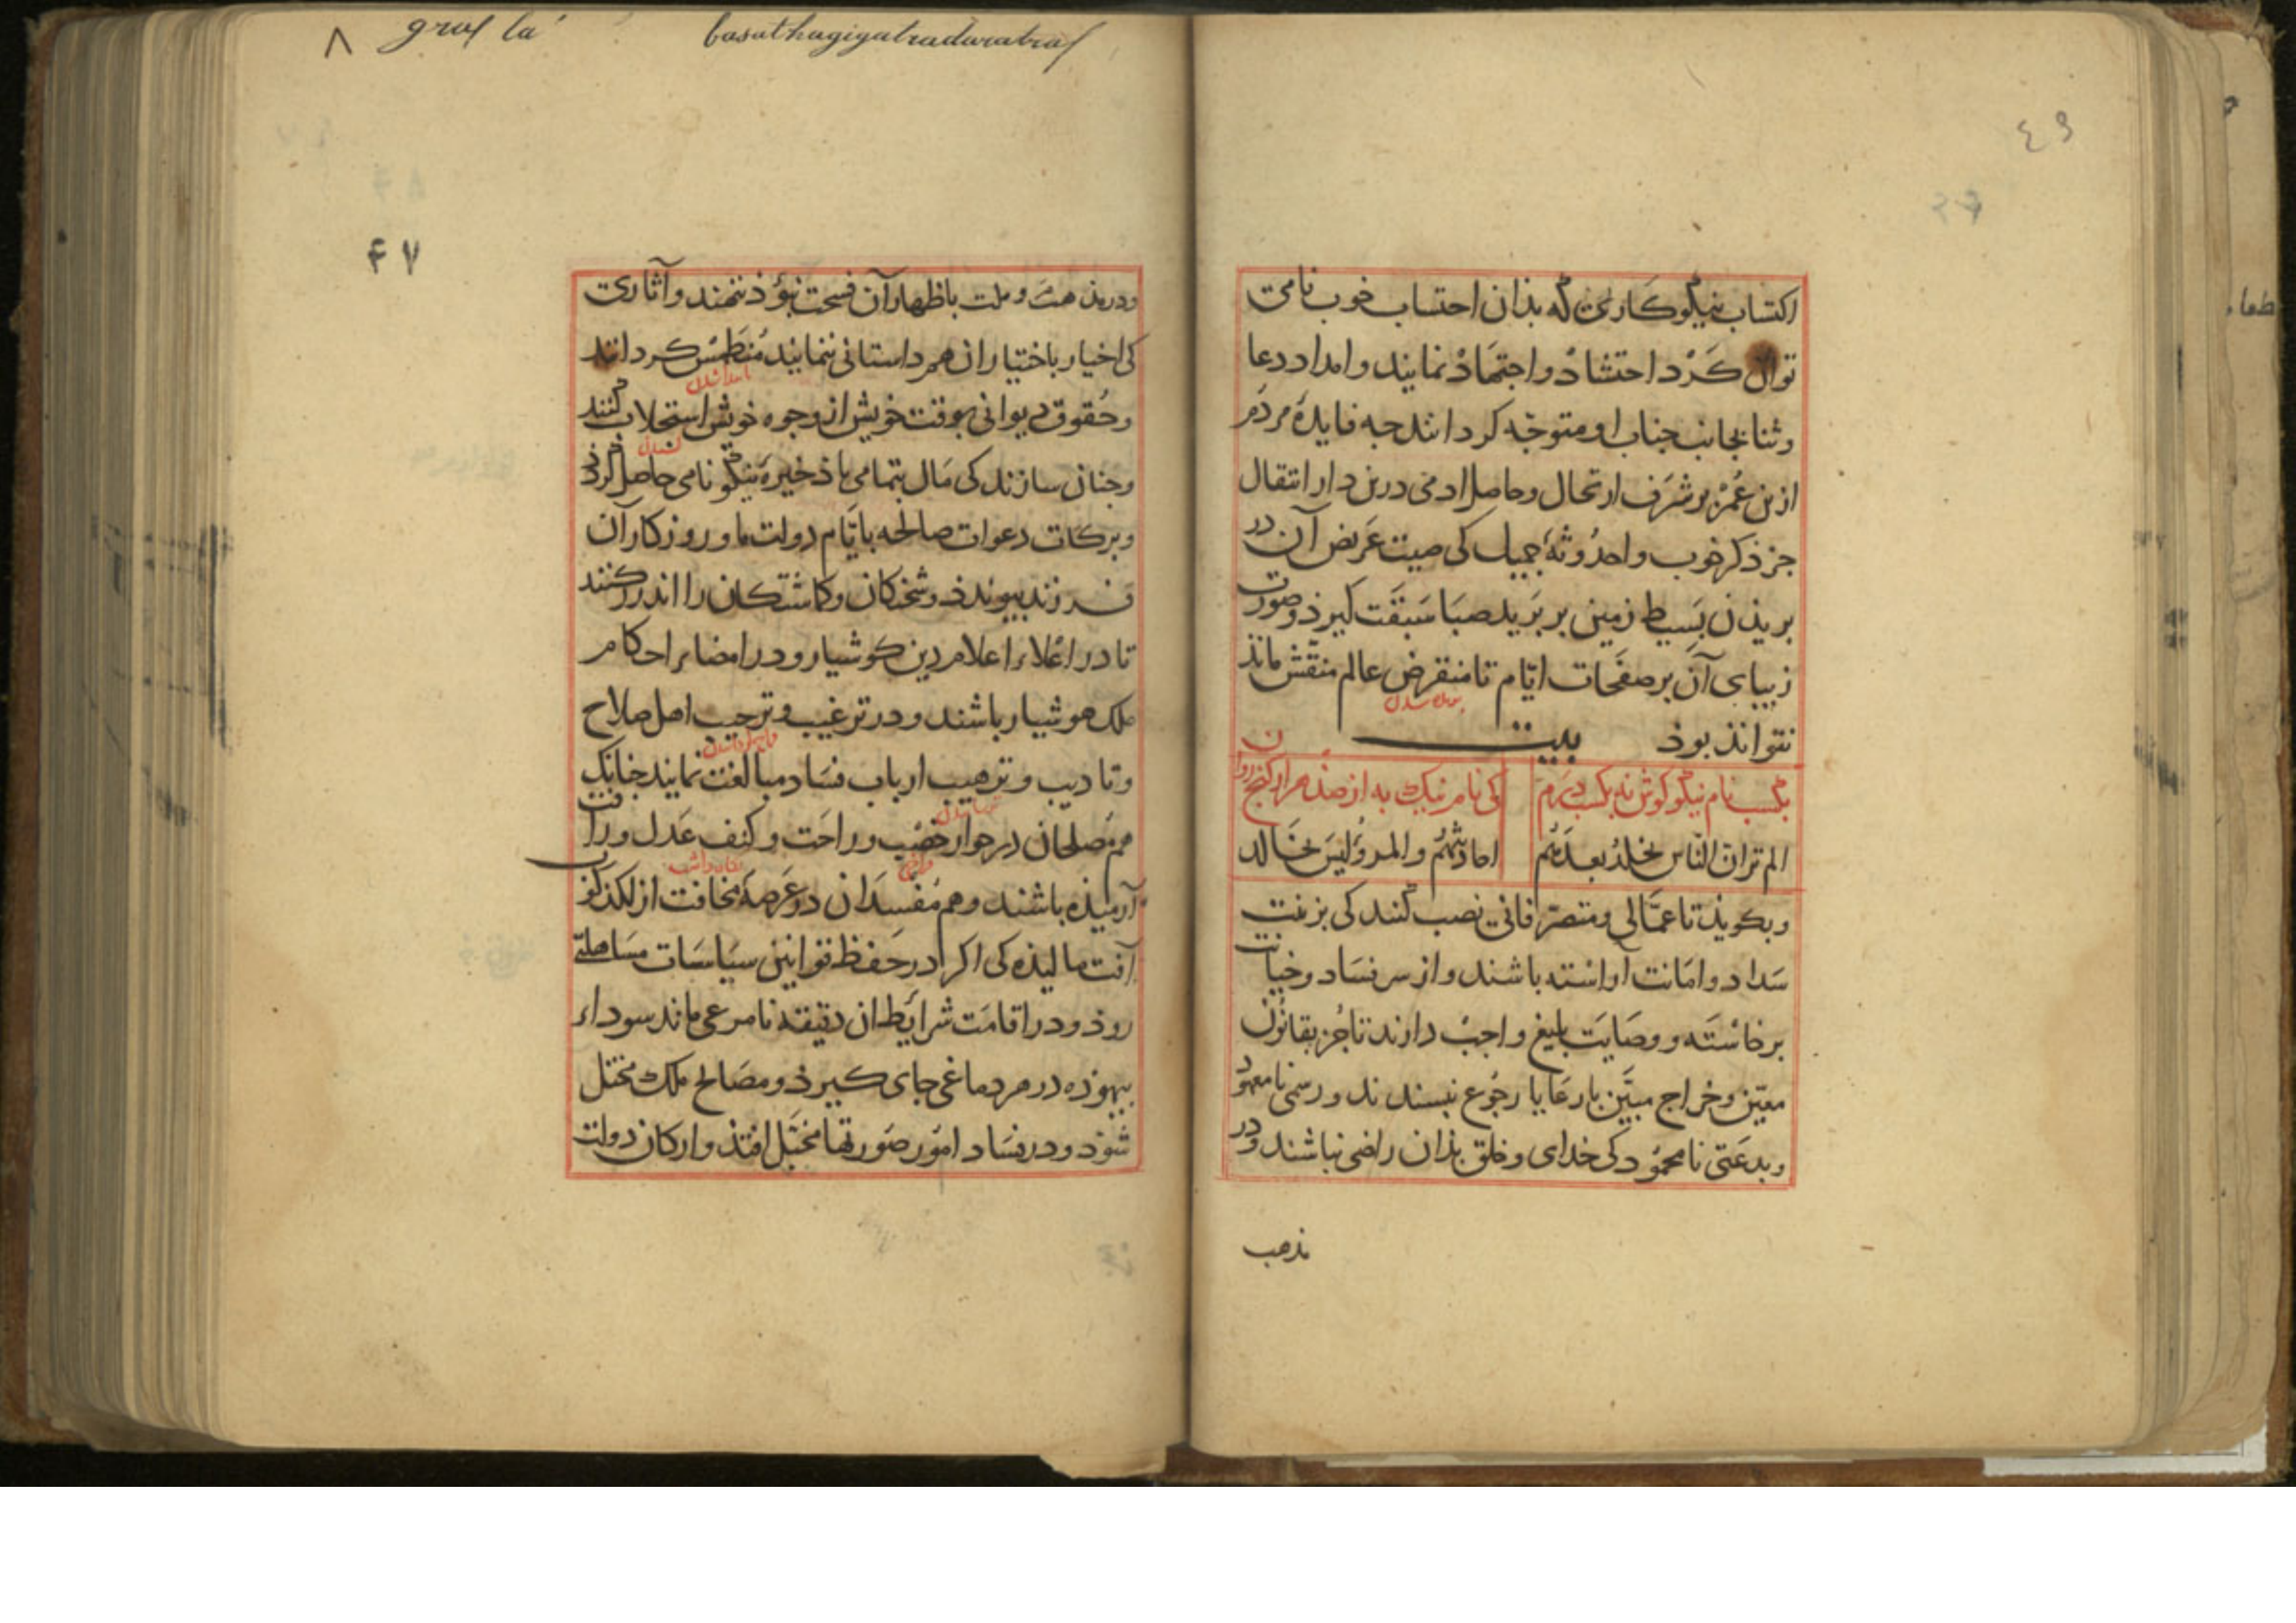 ٤٩
اکتساب نیکوکاری که بذان احتساب خوب نامی
توان کرد احتشاذ و اجتهاذ نمایند و امداد دعا
و ثنا بجانب جناب او متوجه کردانند جه فایدهٔ مردم
ازین عمر بر شرف ارتحال و حاصل ادمی درین دار انتقال
جز ذکر خوب و احدوثهٔ جمیل کی صیت عریض آن در
بریذن بسیط زمین بر برید صبا سبقت کیرذ و صورت
زیبای آن بر صفحات ایام تا منقرض عالم منقش ماند
نتواند بوذ بیت
بکسب نام نیکو کوش نه بکسب درم
کی نام نیک به از صذ هزار کنج روان
الم تر ان الناس تخلد بعدهم
احادیثهم والمرء لیس بخالد
و بکویذ تا عمالی و متصرفانی نصب کنند کی بزینت
سداد و امانت آراسته باشند و از سر فساد و خیانت
برخاسته و وصایت بلیغ واجب دارند تا جز بقانون
معین و خراج مبین با رعایا رجوع نپسندند و رسمی نامعهود
و بدعتی نامحمود کی خدای و خلق بذان راضی نباشند و در
مذهب
۸
۴۷
و دریذن همت و ملت باظهار آن فسحت نبوذ ننهند و آثاری
کی اخیار باختیار ان همداستانی ننمایند منطمس کردانند
و حقوق دیوانی بوقت خویش از وجوه خویش استحلاب کنند
و جنان سازند کی مال بتمامی با ذخیرهٔ نیکو نامی حاصل کرذ
و برکات دعوات صالحه بایام دولت ما و روزکار آن
فرزند پیوندذ و شحنکان و کماشتکان را اندرز کنند
تا در اعلاء اعلام دین کوشیار و در امضاء احکام
ملک هوشیار باشند و در ترغیب و ترحیب اهل صلاح
و تادیب و ترهیب ارباب فساد مبالغت نمایند جنانک
هم مصلحان در جوار خصب و راحت و کنف عدل و رافت
آرمیذه باشند و هم مفسدان در عرصهٔ مخافت از لکذکوب
آفت مالیذه کی اکر در حفظ قوانین سیاسات مساهلتی
روذ و در اقامت شرایط ان دقیقه نامرعی ماند سوداء
بیهوذه در هر دماغی جای کیرذ و مصالح ملک مختل
شوذ و در فساد امور صورتها مخیل افتذ و ارکان دولت